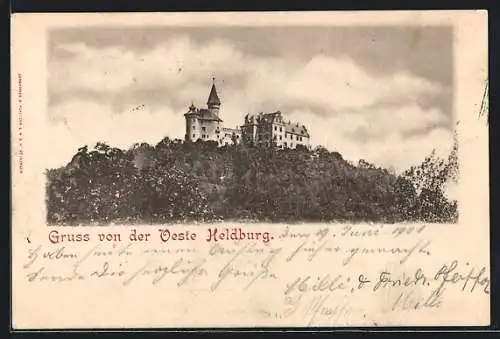 Gruss von der Veste Heldburg. den 19. Juni 1901
Haben heute einen Ausflug hieher gemacht
Senden die herzliche Grüße
Milli. & Friedr. Pfeiffer